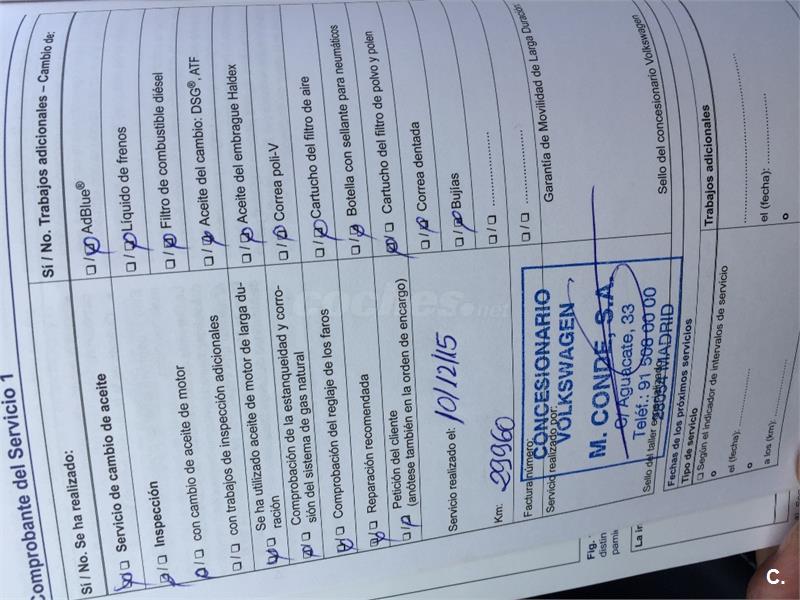 Comprobante del Servicio 1
Sí / No. Se ha realizado:
☐ / ☐ Servicio de cambio de aceite
☐ / ☐ Inspección
☐ / ☐ con cambio de aceite de motor
☐ / ☐ con trabajos de inspección adicionales
Se ha utilizado aceite de motor de larga du-
☐ / ☐ ración
Comprobación de la estanqueidad y corro-
☐ / ☐ sión del sistema de gas natural
☐ / ☐ Comprobación del reglaje de los faros
☐ / ☐ Reparación recomendada
Petición del cliente
☐ / ☐ (anótese también en la orden de encargo)
Servicio realizado el: 10/12/15
Km: 29960
Factura número:
Servicio realizado por:
CONCESIONARIO
VOLKSWAGEN
M. CONDE, S.A.
C/ Aguacate, 33
Teléf.: 91 508 00 00
28054 MADRID
Sello del taller
Sí / No. Trabajos adicionales – Cambio de:
☐ / ☐ AdBlue®
☐ / ☐ Líquido de frenos
☐ / ☐ Filtro de combustible diésel
☐ / ☐ Aceite del cambio: DSG®, ATF
☐ / ☐ Aceite del embrague Haldex
☐ / ☐ Correa poli-V
☐ / ☐ Cartucho del filtro de aire
☐ / ☐ Botella con sellante para neumáticos
☐ / ☐ Cartucho del filtro de polvo y polen
☐ / ☐ Correa dentada
☐ / ☐ Bujías
☐ / ☐ ....................
☐ / ☐ ....................
Garantía de Movilidad de Larga Duración
Sello del concesionario Volkswagen
Fechas de los próximos servicios
Tipo de servicio
☐ Según el indicador de intervalos de servicio
o
el (fecha): ....................
o
a los (km): ....................
Trabajos adicionales
....................
el (fecha): ....................
o
Fig.
distin
pami
La in
coches.net
C.